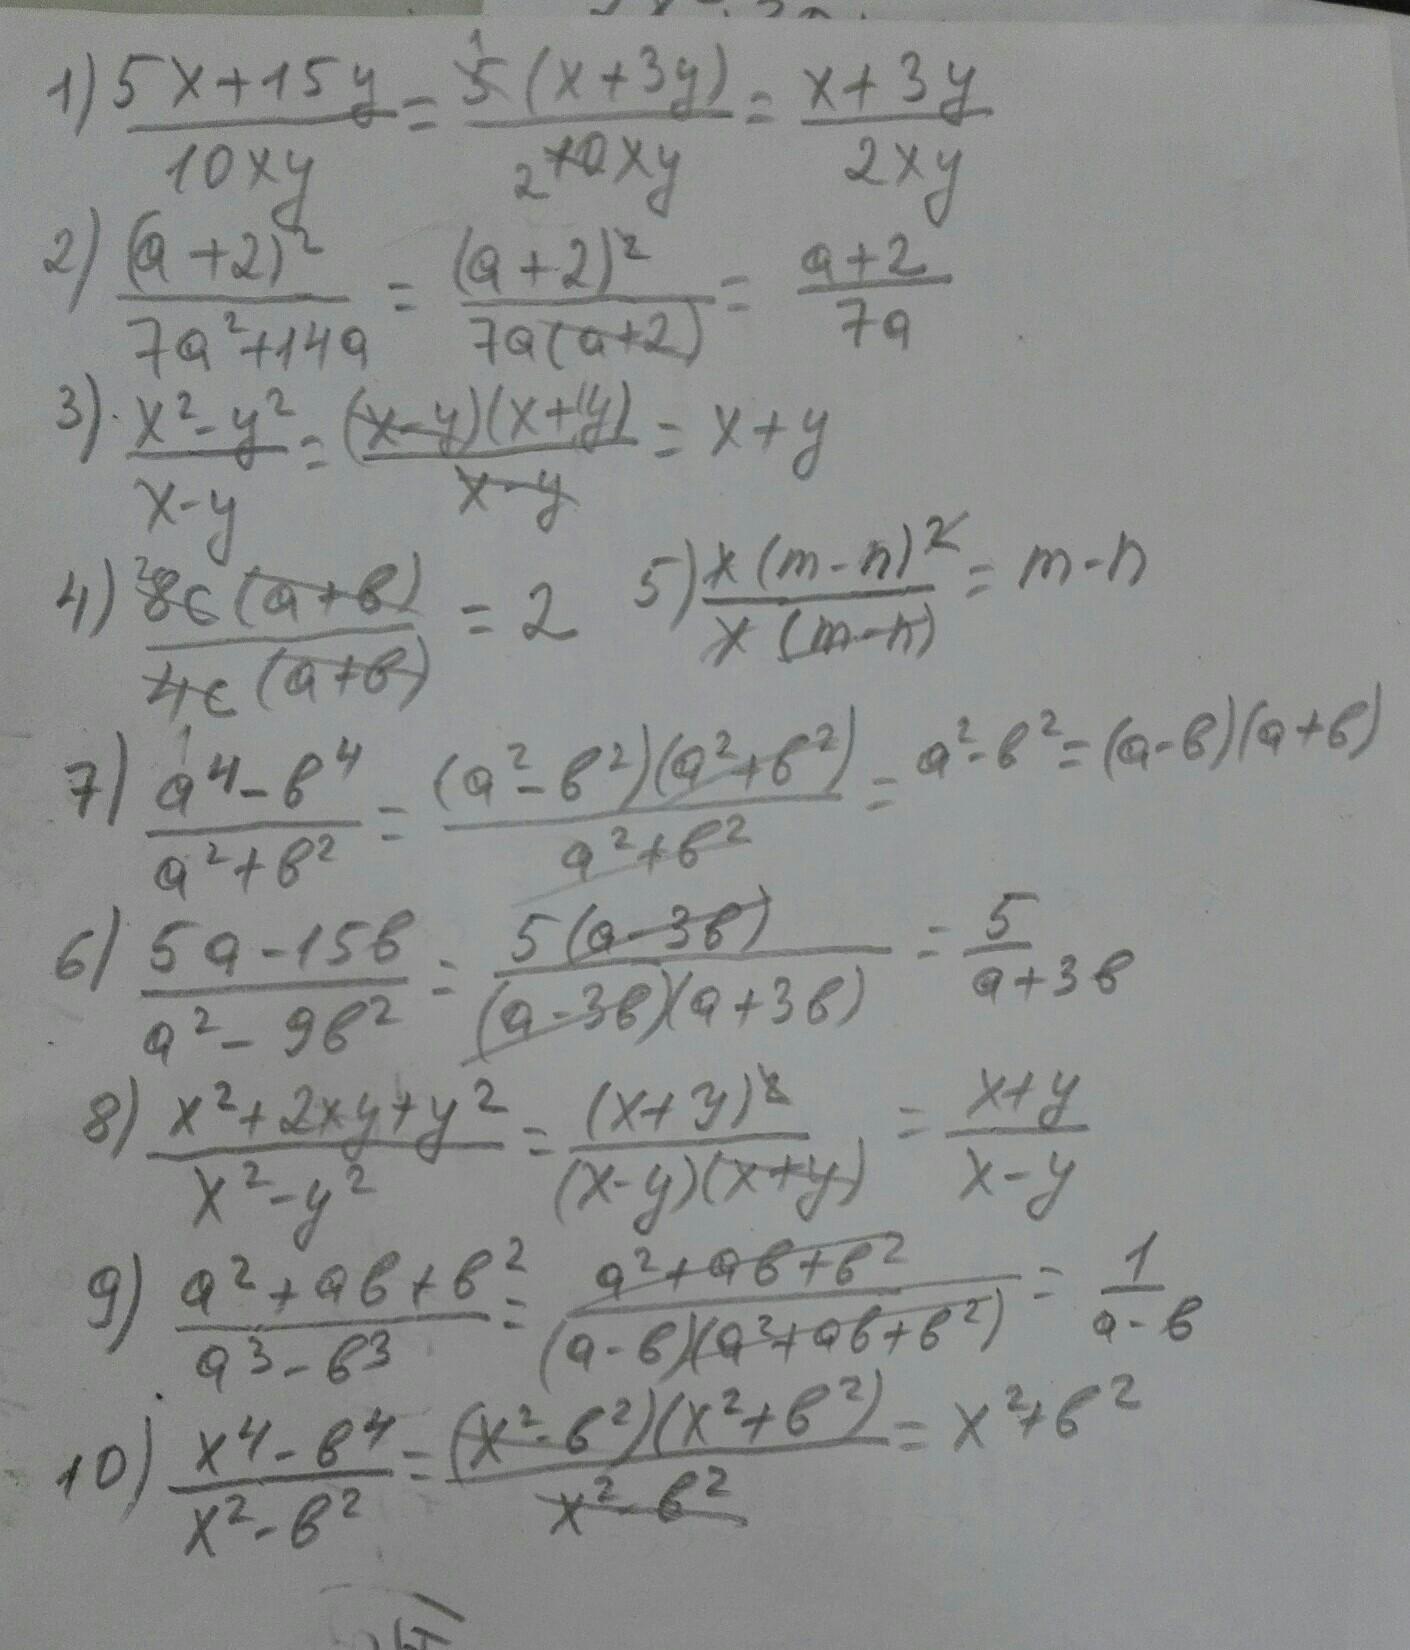 1) (5x+15y)/(10xy) = (5(x+3y))/(10xy) = (x+3y)/(2xy)
2) (a+2)²/(7a²+14a) = (a+2)²/(7a(a+2)) = (a+2)/(7a)
3) (x²-y²)/(x-y) = ((x-y)(x+y))/(x-y) = x+y
4) (8c(a+в))/(4c(a+в)) = 2 5) (x(m-n)²)/(x(m-n)) = m-n
7) (a⁴-в⁴)/(a²+в²) = ((a²-в²)(a²+в²))/(a²+в²) = a²-в² = (a-в)(a+в)
6) (5a-15в)/(a²-9в²) = (5(a-3в))/((a-3в)(a+3в)) = 5/(a+3в)
8) (x²+2xy+y²)/(x²-y²) = (x+y)²/((x-y)(x+y)) = (x+y)/(x-y)
9) (a²+aв+в²)/(a³-в³) = (a²+aв+в²)/((a-в)(a²+aв+в²)) = 1/(a-в)
10) (x⁴-в⁴)/(x²-в²) = ((x²-в²)(x²+в²))/(x²-в²) = x²+в²